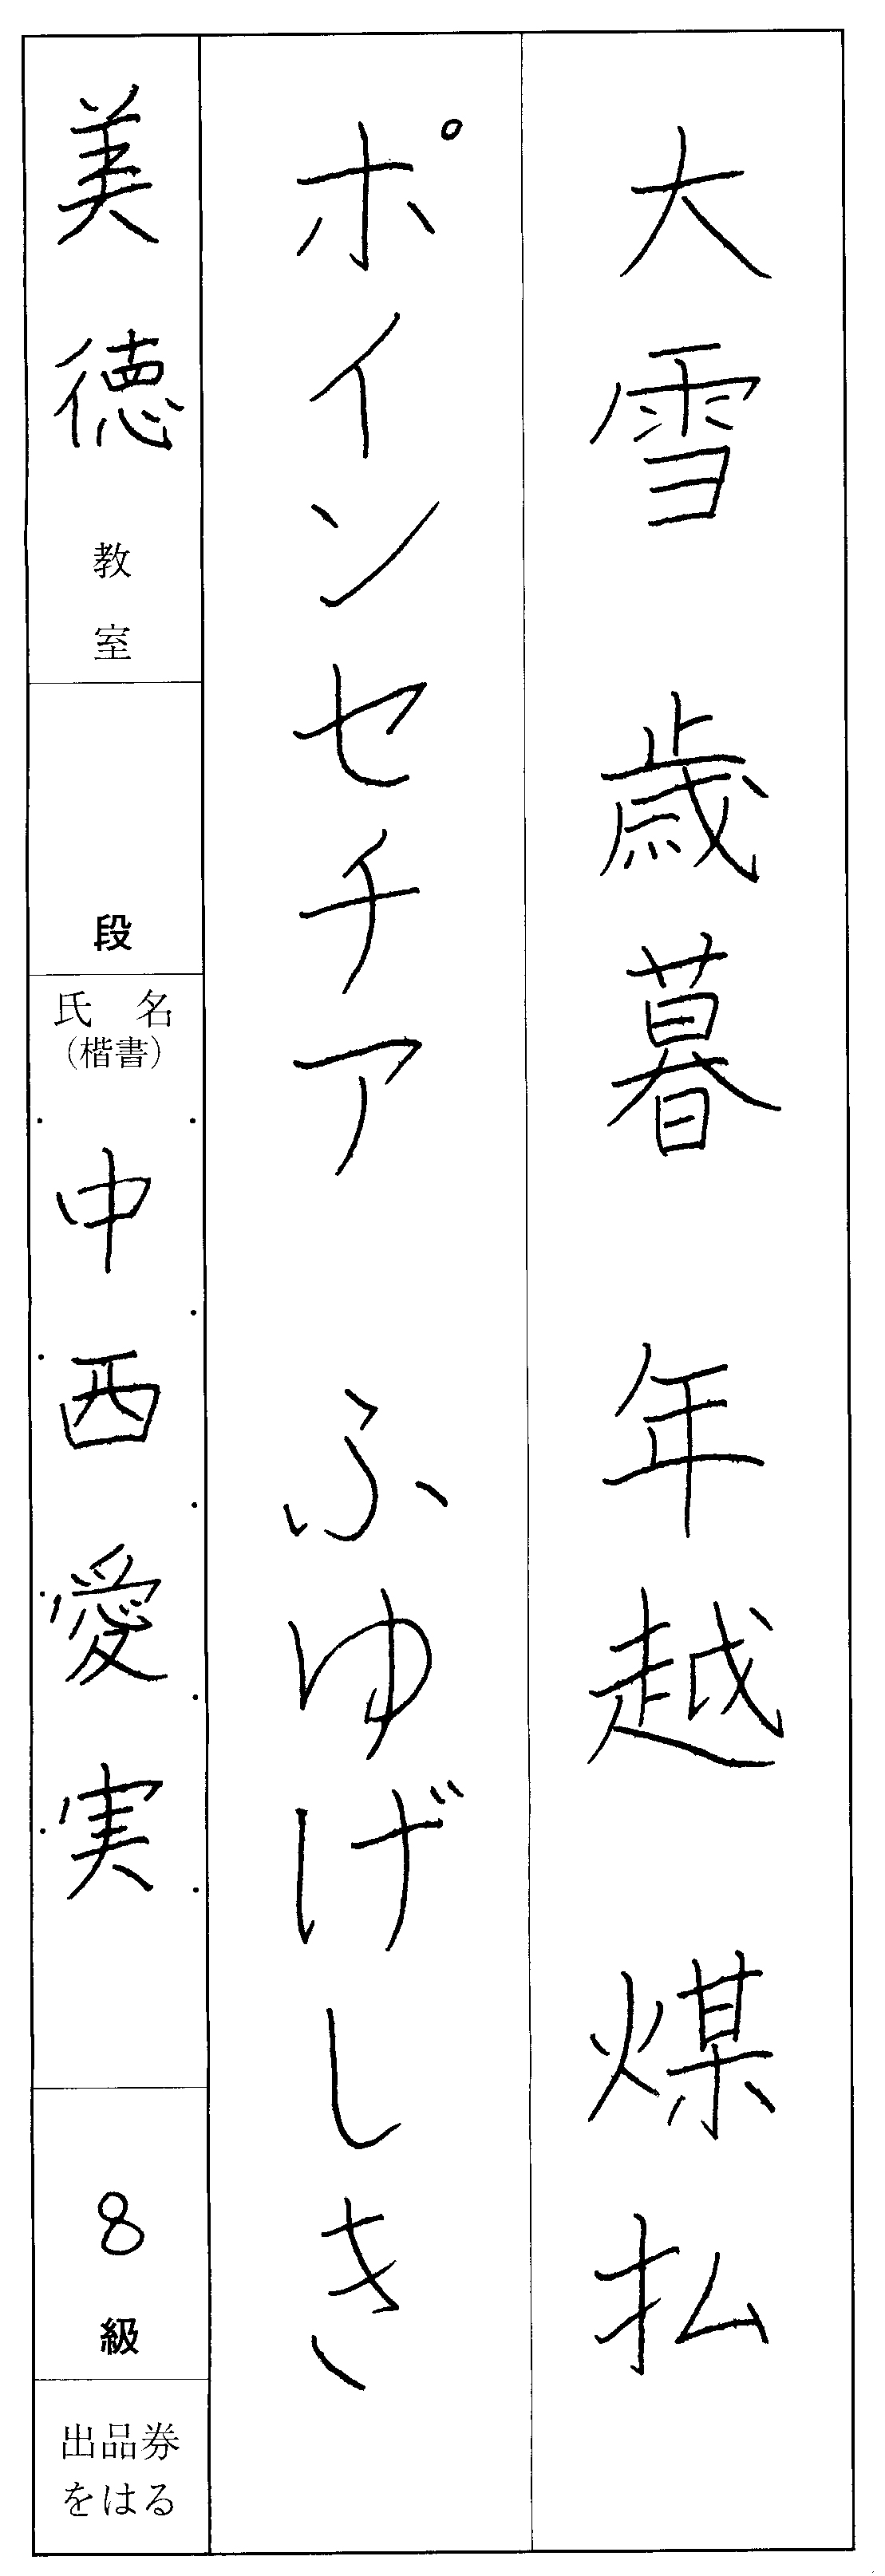 大雪　歳暮　年越　煤払
ポインセチア　ふゆげしき
美徳教室
段
氏名
(楷書)
中西愛実
8級
出品券
をはる